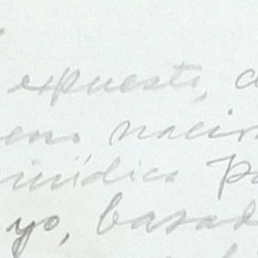 expuesto, c
eno nacion
urídico pa
yo, basad